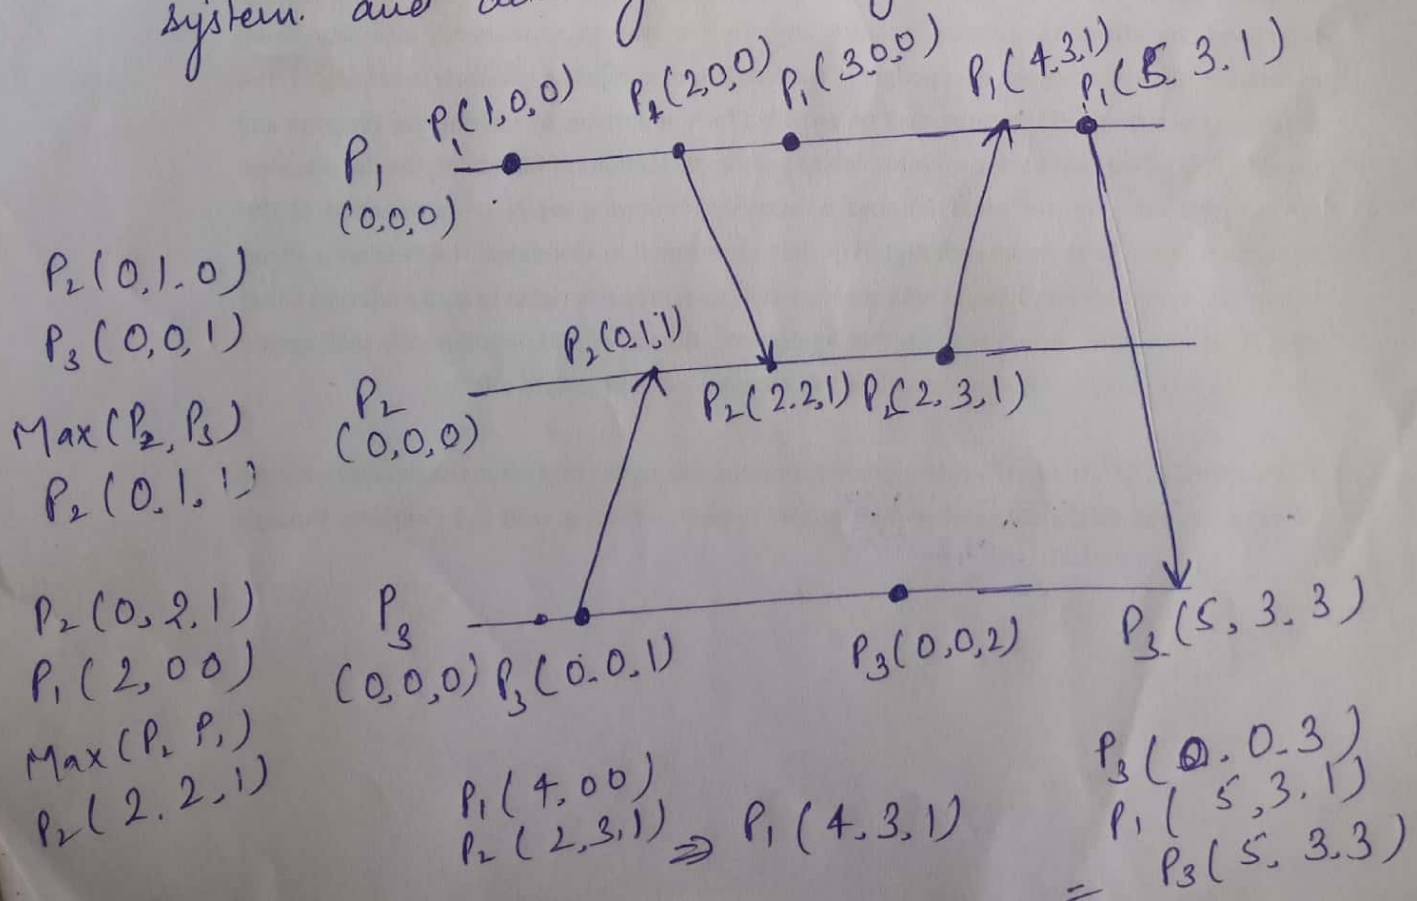 system. and
P₁(1,0,0) P₁(2,0,0) P₁(3,0,0) P₁(4,3,1) P₁(5,3,1)
P₁
(0,0,0)
P₂(0,1,0)
P₃(0,0,1)
Max(P₂, P₃)
P₂(0,1,1)
P₂(0,1,1)
P₂
(0,0,0)
P₂(2,2,1) P₂(2,3,1)
P₂(0,2,1)
P₁(2,00)
Max(P₂ P₁)
P₂(2,2,1)
P₃
(0,0,0) P₃(0,0,1)
P₃(0,0,2)
P₃(5,3,3)
P₁(4,00)
P₂(2,3,1) ⇒ P₁(4,3,1)
P₃(0,0,3)
P₁(5,3,1)
= P₃(5,3,3)